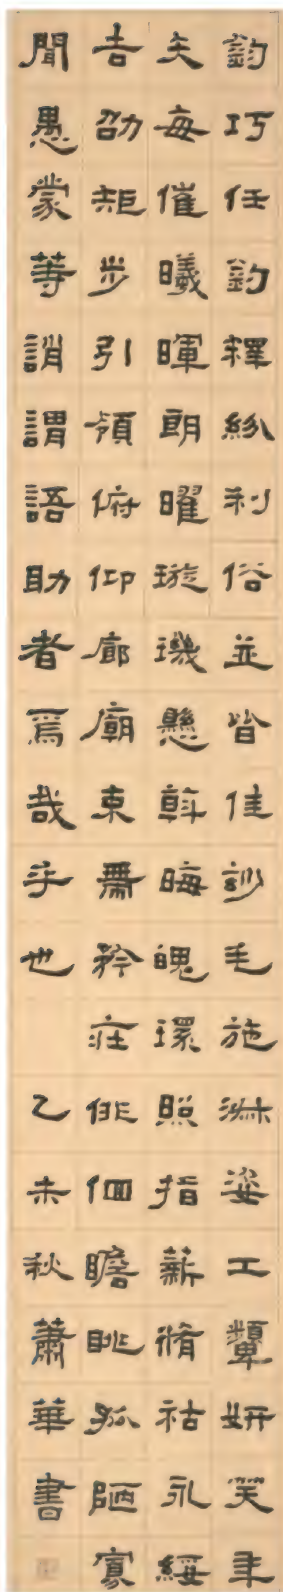 鈞巧任釣釋紛利俗並皆佳妙毛施淑姿工顰妍笑年
矢每催曦暉朗曜璇璣懸斡晦魄環照指薪脩祜永綏
吉劭矩步引領俯仰廊廟束帶矜庄俳佪瞻眺孤陋寡
聞愚蒙等誚謂語助者焉哉乎也 乙未秋蕭華書